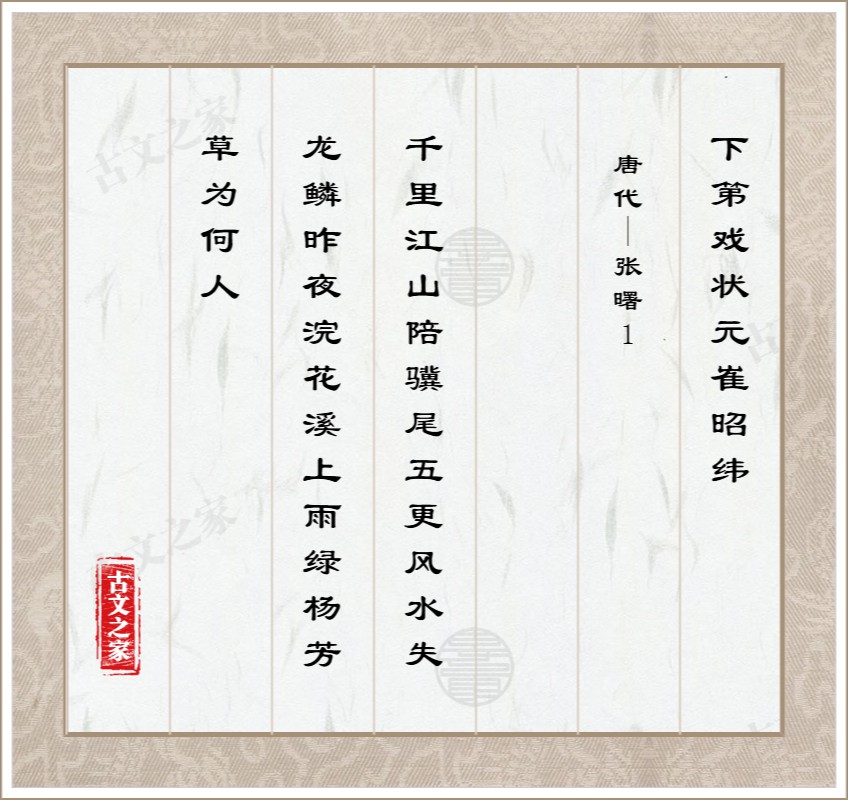 下第戏状元崔昭纬
唐代—张曙1
千里江山陪骥尾五更风水失
龙鳞昨夜浣花溪上雨绿杨芳
草为何人
古文之家
古文之家
古文之家